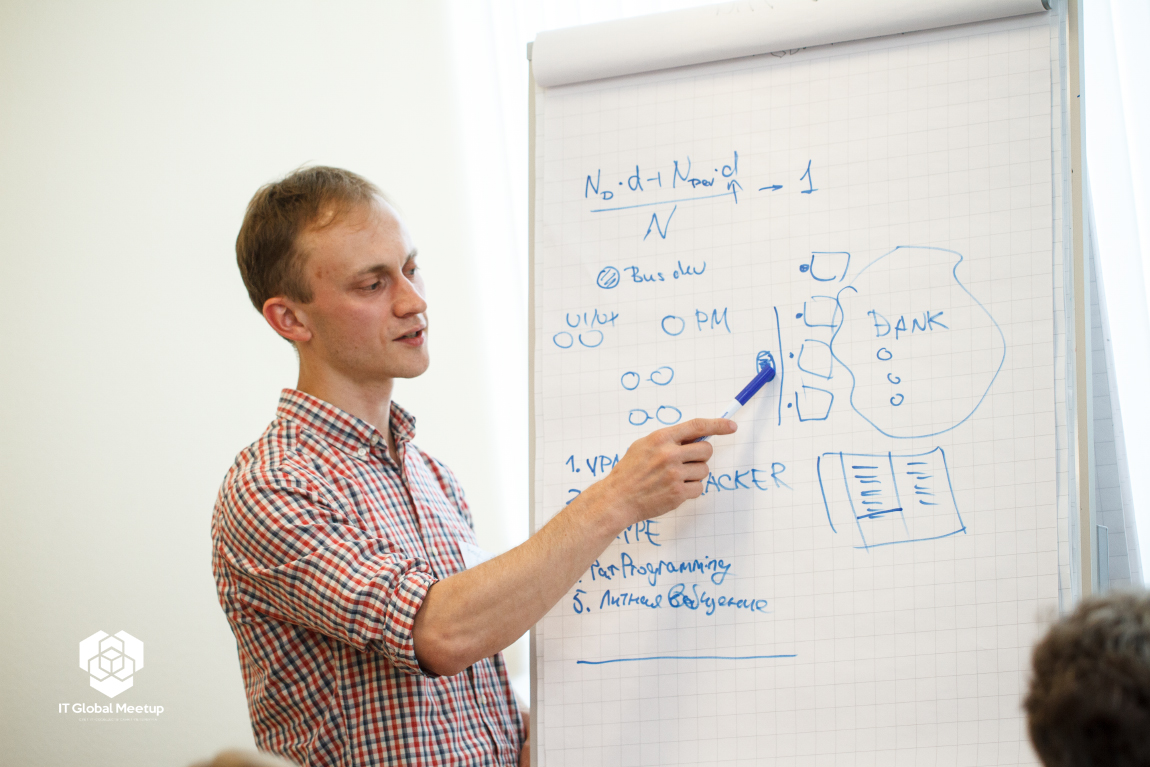 N_D·d+N_Dev·d → 1
N
Bus dev
UI/UX
PM
BANK
1. VPN
ACKER
PPE
Par Programming
5. Личная общение
IT Global Meetup